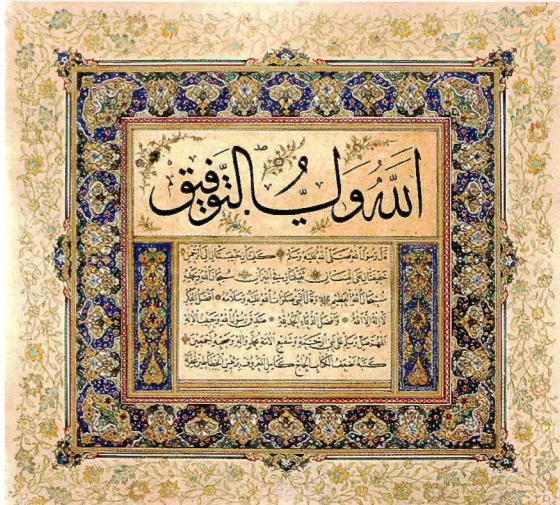 الله ولي التوفيق
قال رسول الله صلى الله عليه وسلم كلمتان حبيبتان إلى الرحمن
خفيفتان على اللسان ثقيلتان في الميزان سبحان الله وبحمده
سبحان الله العظيم وقال النبي صلوات الله عليه وسلامه أفضل الذكر
لا إله إلا الله وأفضل الدعاء الحمد لله صدق رسول الله وحبيب الله
اللهم صل وسلم على نبي الرحمة وشفيع الأمة محمد وآله وصحبه أجمعين
كتبه أضعف الكتاب